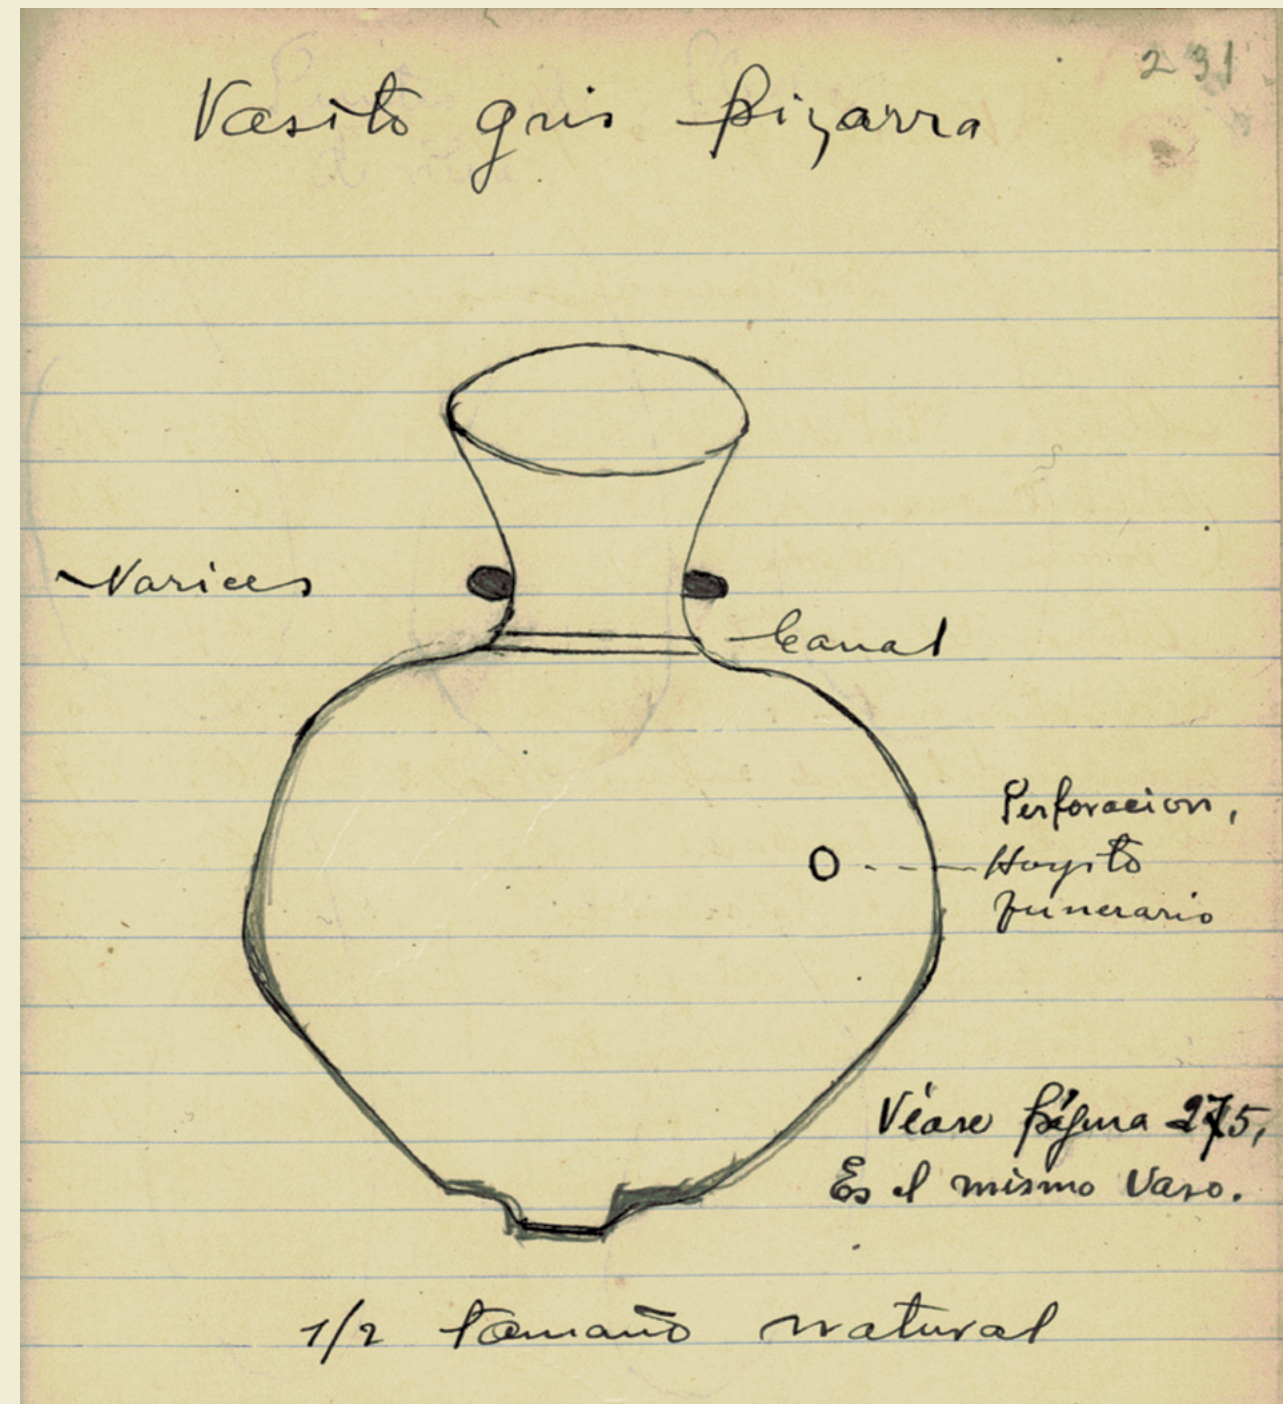 231
Vasito gris pizarra
Narices
Canal
Perforacion,
Hoyito
funerario
Véase página 275,
Es el mismo Vaso.
1/2 tamaño natural